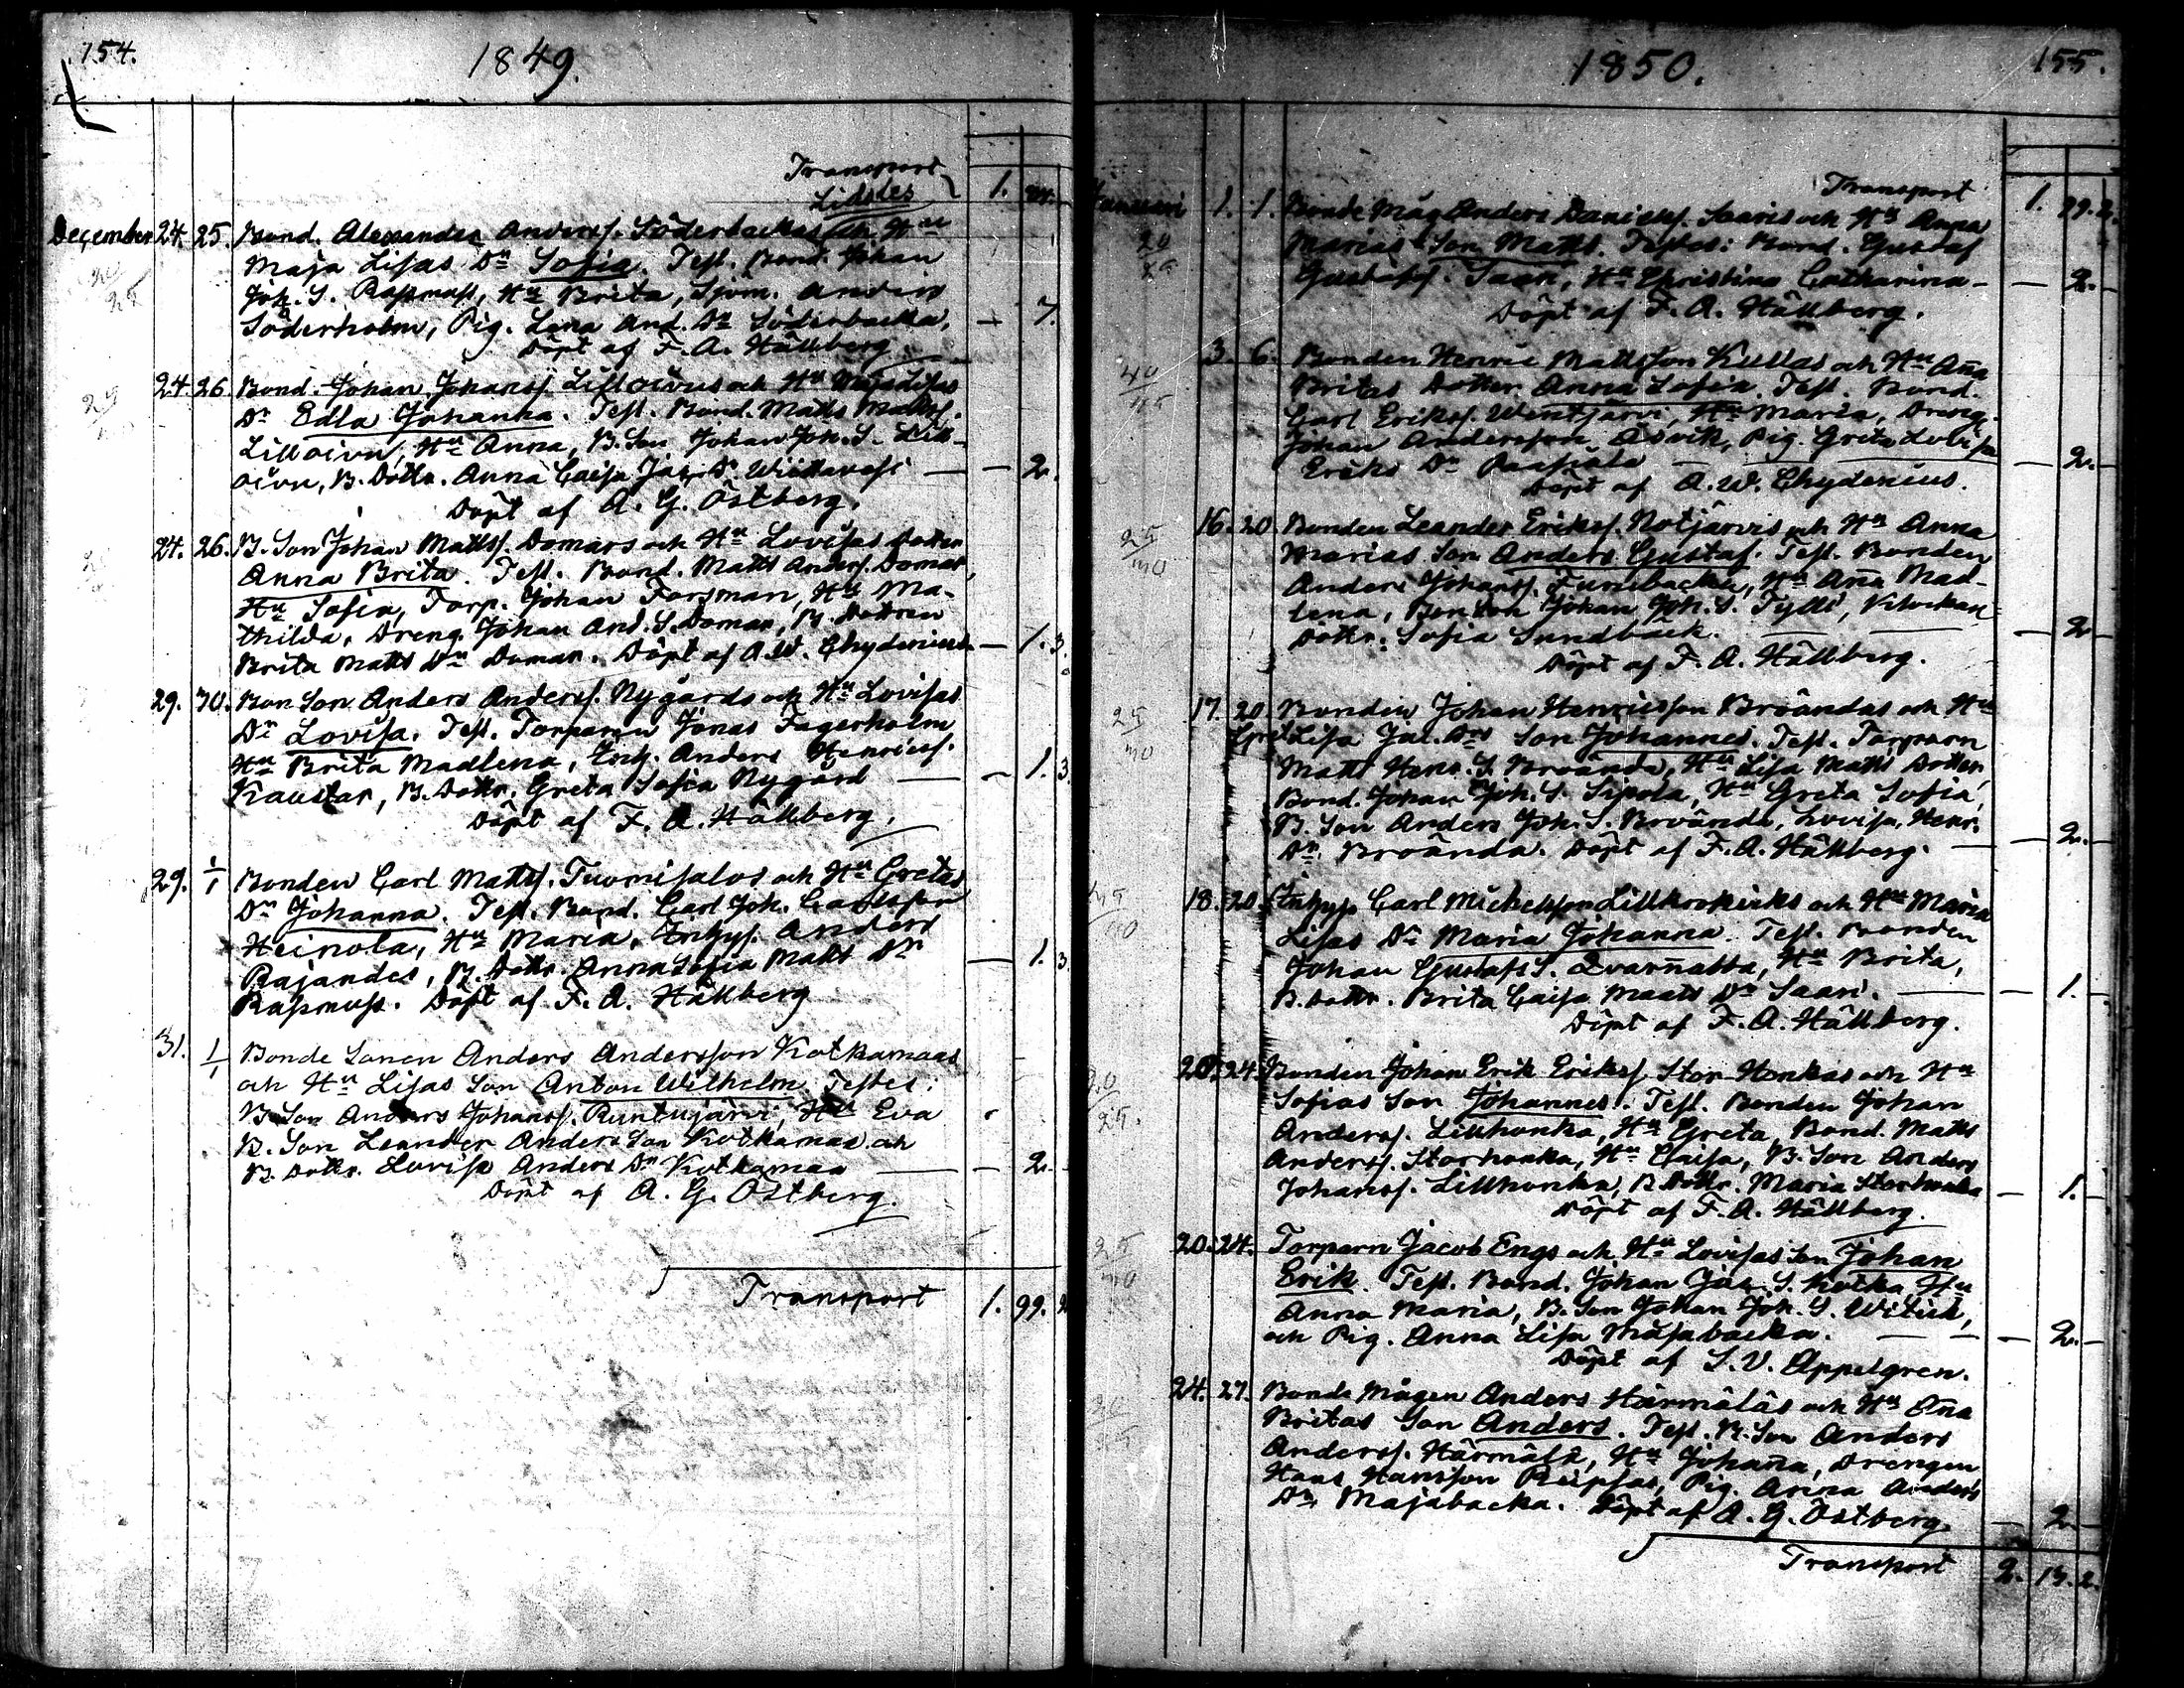 154.
1849.
Transport
Lidstes 1.
December 24. 25. Bond. Alexander Anderss. Söderbackas och Hu
Maja Lisas Dr Sofia. Test. Bond. Johan
Joh. S. Rassmuss, Hu Brita, Sjöm. Anders
Söderholm, Pig. Lena And. Dr Söderbacka. — 7.
Döpt af F. A. Hällberg
24. 26. Bond. Johan Johanss. Lilloivus och Hu Maja Lisas
Dr Edla Johanna. Test. Bond. Matts Mattss.
Lilloivu, Hu Anna, B. Son Johan Joh. S. Lill-
oivu, B. Dottr. Anna Caisa Jac. Dr — — 2.
Döpt af A. G. Östberg.
24. 26. B. Son Johan Mattss. Domars och Hu Lovisas Dotter
Anna Brita. Test. Bond. Matts Anderss. Domar,
Hu Sofia, Torp. Johan Forsman, Hu Ma-
thilda, Dreng. Johan And. S. Domar, B. Dottren
Brita Matts Dr Domar. Döpt af A. W. Chydenius — 1. 3.
29. 30. Bon Son Anders Anderss. Nygårds och Hu Lovisas
Dr Lovisa. Test. Torparen Jonas Fagerholm
Hu Brita Madlena, Enk. Anders Henricss.
Kaustar, B. Dottr. Greta Sofia Nygård — — 1. 3.
Döpt af F. A. Hällberg.
29. 1/1 Bonden Carl Mattss. Tuomisalos och Hu Gretas
Dr Johanna. Test. Bond. Carl Joh. Carlsson
Heinola, Hu Maria, Inhys. Anders
Rajandes, B. Dottr. Anna Sofia Matts Dr — 1. 3.
Rassmuss. Döpt af F. A. Hällberg
31. 1/1 Bonde Sonen Anders Andersson Kotkamaas
och Hu Lisas Son Anton Wilhelm. Testes:
B. Son Anders Johanss. Runtujärvi, Hu Eva
B. Son Leander Anders Son Kotkamaa och
B. Dottr. Lovisa Anders Dr Kotkamaa — — 2.
Döpt af A. G. Östberg.
Transport 1. 99. 2
1850.
155.
Transport 1. 99. 2.
Januari 1. 1. Bonde Måg Anders Danielss. Saaris och Hu Anna
Marias Son Matts. Testes: Bond. Gustaf
Gustafss. Saari, Hu Christina Catharina — — 2. —
Döpt af F. A. Hällberg.
3. 6. Bonden Henric Mattsson Kullas och Hu Aña
Britas Dotter Anna Sofia. Test. Bond.
Carl Erikss. Wintjärvi, Hu Maria, Dreng.
Johan Andersson Åsvik, Pig. Greta Lovisa
Eriks Dr — — 2. —
Döpt af A. W. Chydenius.
16. 20. Bonden Leander Erikss. Notjärvis och Hu Anna
Marias Son Anders Gustaf. Test. Bonden
Anders Johanss. Furubacka, Hu Aña Mad-
lena, Bon Son Johan Joh. S. Tylli, Klockar-
Dottr. Sofia Sundbäck. — — — 2
Döpt af F. A. Hällberg.
17. 20 Bonden Johan Henricsson Broändas och Hu
Greta Lisa Jac. Drs Son Johannes. Test. Torparn
Matts Henr. S. Broända, Hu Lisa Matts Dotter,
Bond. Johan Joh. S. Sipola, Hu Greta Sofia,
B. Son Anders Joh. S. Broända, Lovisa Henr.
Dr Broända. Döpt af F. A. Hällberg. — — 2. —
18. 20. Inhys. Carl Michelsson Lillkrokviks och Hu Maria
Lisas Dr Maria Johanna. Test. Bonden
Johan Gustafs S. Qvarnabba, Hu Brita,
B. Dottr. Brita Caisa Matts Dr Saari. — — 1. —
Döpt af F. A. Hällberg.
20. 24. Bonden Johan Erik Erikss. Stor Honkas och Hu
Sofias Son Johannes. Test. Bonden Johan
Anderss. Lillhonka, Hu Greta, Bond. Matts
Anderss. Storhonka, Hu Caisa, B. Son Anders
Johanss. Lillhonka, B. Dottr. Maria Storhonka — 1. —
Döpt af F. A. Hällberg.
20. 24. Torparn Jacob Engs och Hu Lovisas Son Johan
Erik. Test. Bond. Johan Jac. S. Kotka, Hu
Anna Maria, B. Son Johan Joh. S. Witick,
och Pig. Anna Lisa Majabacka. — — — 2. —
Döpt af S. V. Appelgren.
24. 27. Bonde Mågen Anders Härmäläs och Hu Aña
Britas Son Anders. Test. B. Son Anders
Anderss. Härmälä, Hu Johaña, Drengen
Hans Hansson Pig. Anna Anders
Dr Majabacka. Döpt af A. G. Östberg. — 2 —
Transport 2. 13. 2.